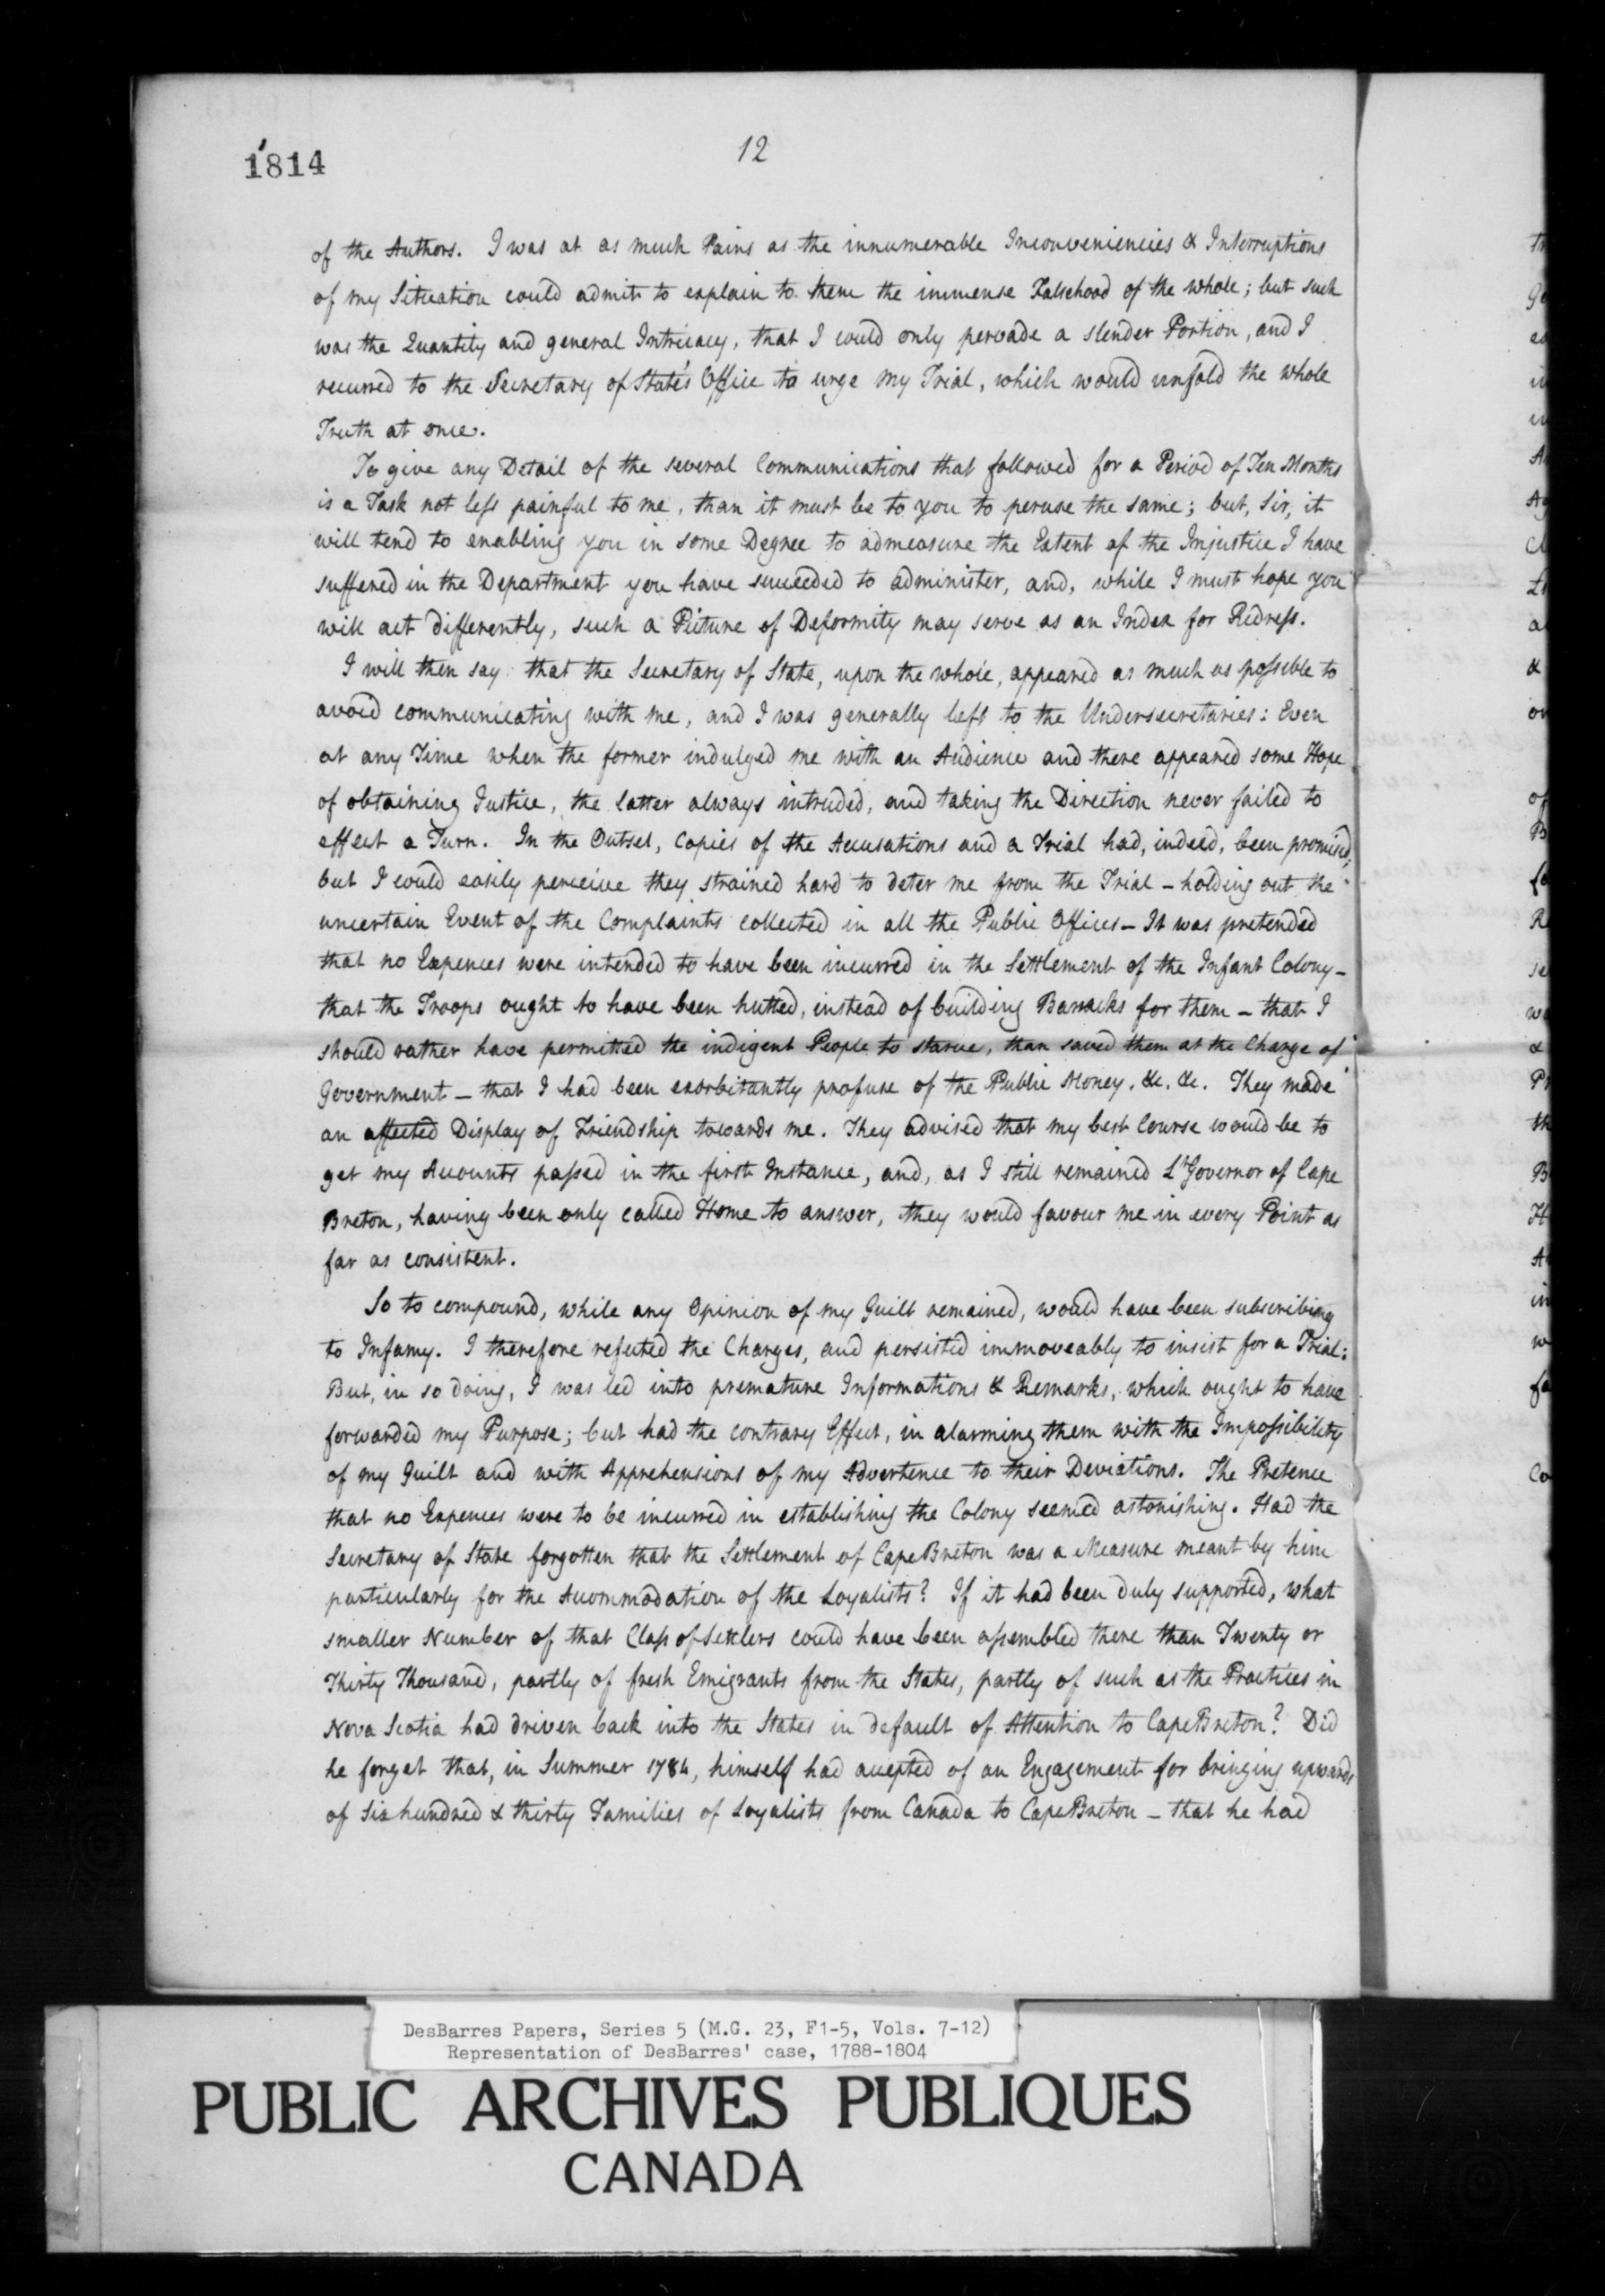 1814
12
of the Authors. I was at as much Pains as the innumerable Inconveniencies & Interruptions
of my Situation could admit to explain to them the immense Falsehood of the whole; but such
was the Quantity and general Intricacy, that I could only pervade a slender Portion, and I
recurred to the Secretary of State's Office to urge my Trial, which would unfold the whole
Truth at once.
To give any Detail of the several Communications that followed for a Period of Ten Months
is a Task not less painful to me, than it must be to you to peruse the same; but, Sir, it
will tend to enabling you in some Degree to admeasure the Extent of the Injustice I have
suffered in the Department you have succeeded to administer, and, while I must hope you
will act differently, such a Picture of Deformity may serve as an Index for Redress.
I will then say that the Secretary of State, upon the whole, appeared as much as possible to
avoid communicating with me, and I was generally left to the Undersecretaries: Even
at any Time when the former indulged me with an Audience and there appeared some Hope
of obtaining Justice, the latter always intruded, and taking the Direction never failed to
effect a Turn. In the Outset, Copies of the Accusations and a Trial had, indeed, been promised;
but I could easily perceive they strained hard to deter me from the Trial – holding out the
uncertain Event of the Complaints collected in all the Public Offices – It was pretended
that no Expences were intended to have been incurred in the Settlement of the Infant Colony –
that the Troops ought to have been hutted, instead of building Barracks for them – that I
should rather have permitted the indigent People to starve, than saved them at the Charge of
Government – that I had been exorbitantly profuse of the Public Money, &c. &c. They made
an affected Display of Friendship towards me. They advised that my best Course would be to
get my Accounts passed in the first Instance, and, as I still remained Lt Governor of Cape
Breton, having been only called Home to answer, they would favour me in every Point as
far as consistent.
So to compound, while any Opinion of my Guilt remained, would have been subscribing
to Infamy. I therefore refuted the Charges, and persisted immoveably to insist for a Trial:
But, in so doing, I was led into premature Informations & Remarks, which ought to have
forwarded my Purpose; but had the contrary Effect, in alarming them with the Impossibility
of my Guilt and with Apprehensions of my Advertence to their Deviations. The Pretence
that no Expences were to be incurred in establishing the Colony seemed astonishing. Had the
Secretary of State forgotten that the Settlement of Cape Breton was a Measure meant by him
particularly for the Accommodation of the Loyalists? If it had been duly supported, what
smaller Number of that Class of Settlers could have been assembled there than Twenty or
Thirty Thousand, partly of fresh Emigrants from the States, partly of such as the Practices in
Nova Scotia had driven back into the States in default of Attention to Cape Breton? Did
he forget that, in Summer 1784, himself had accepted of an Engagement for bringing upwards
of Six hundred & thirty Families of Loyalists from Canada to Cape Breton – that he had
DesBarres Papers, Series 5 (M.G. 23, F1-5, Vols. 7-12)
Representation of DesBarres' case, 1788-1804
PUBLIC ARCHIVES PUBLIQUES
CANADA